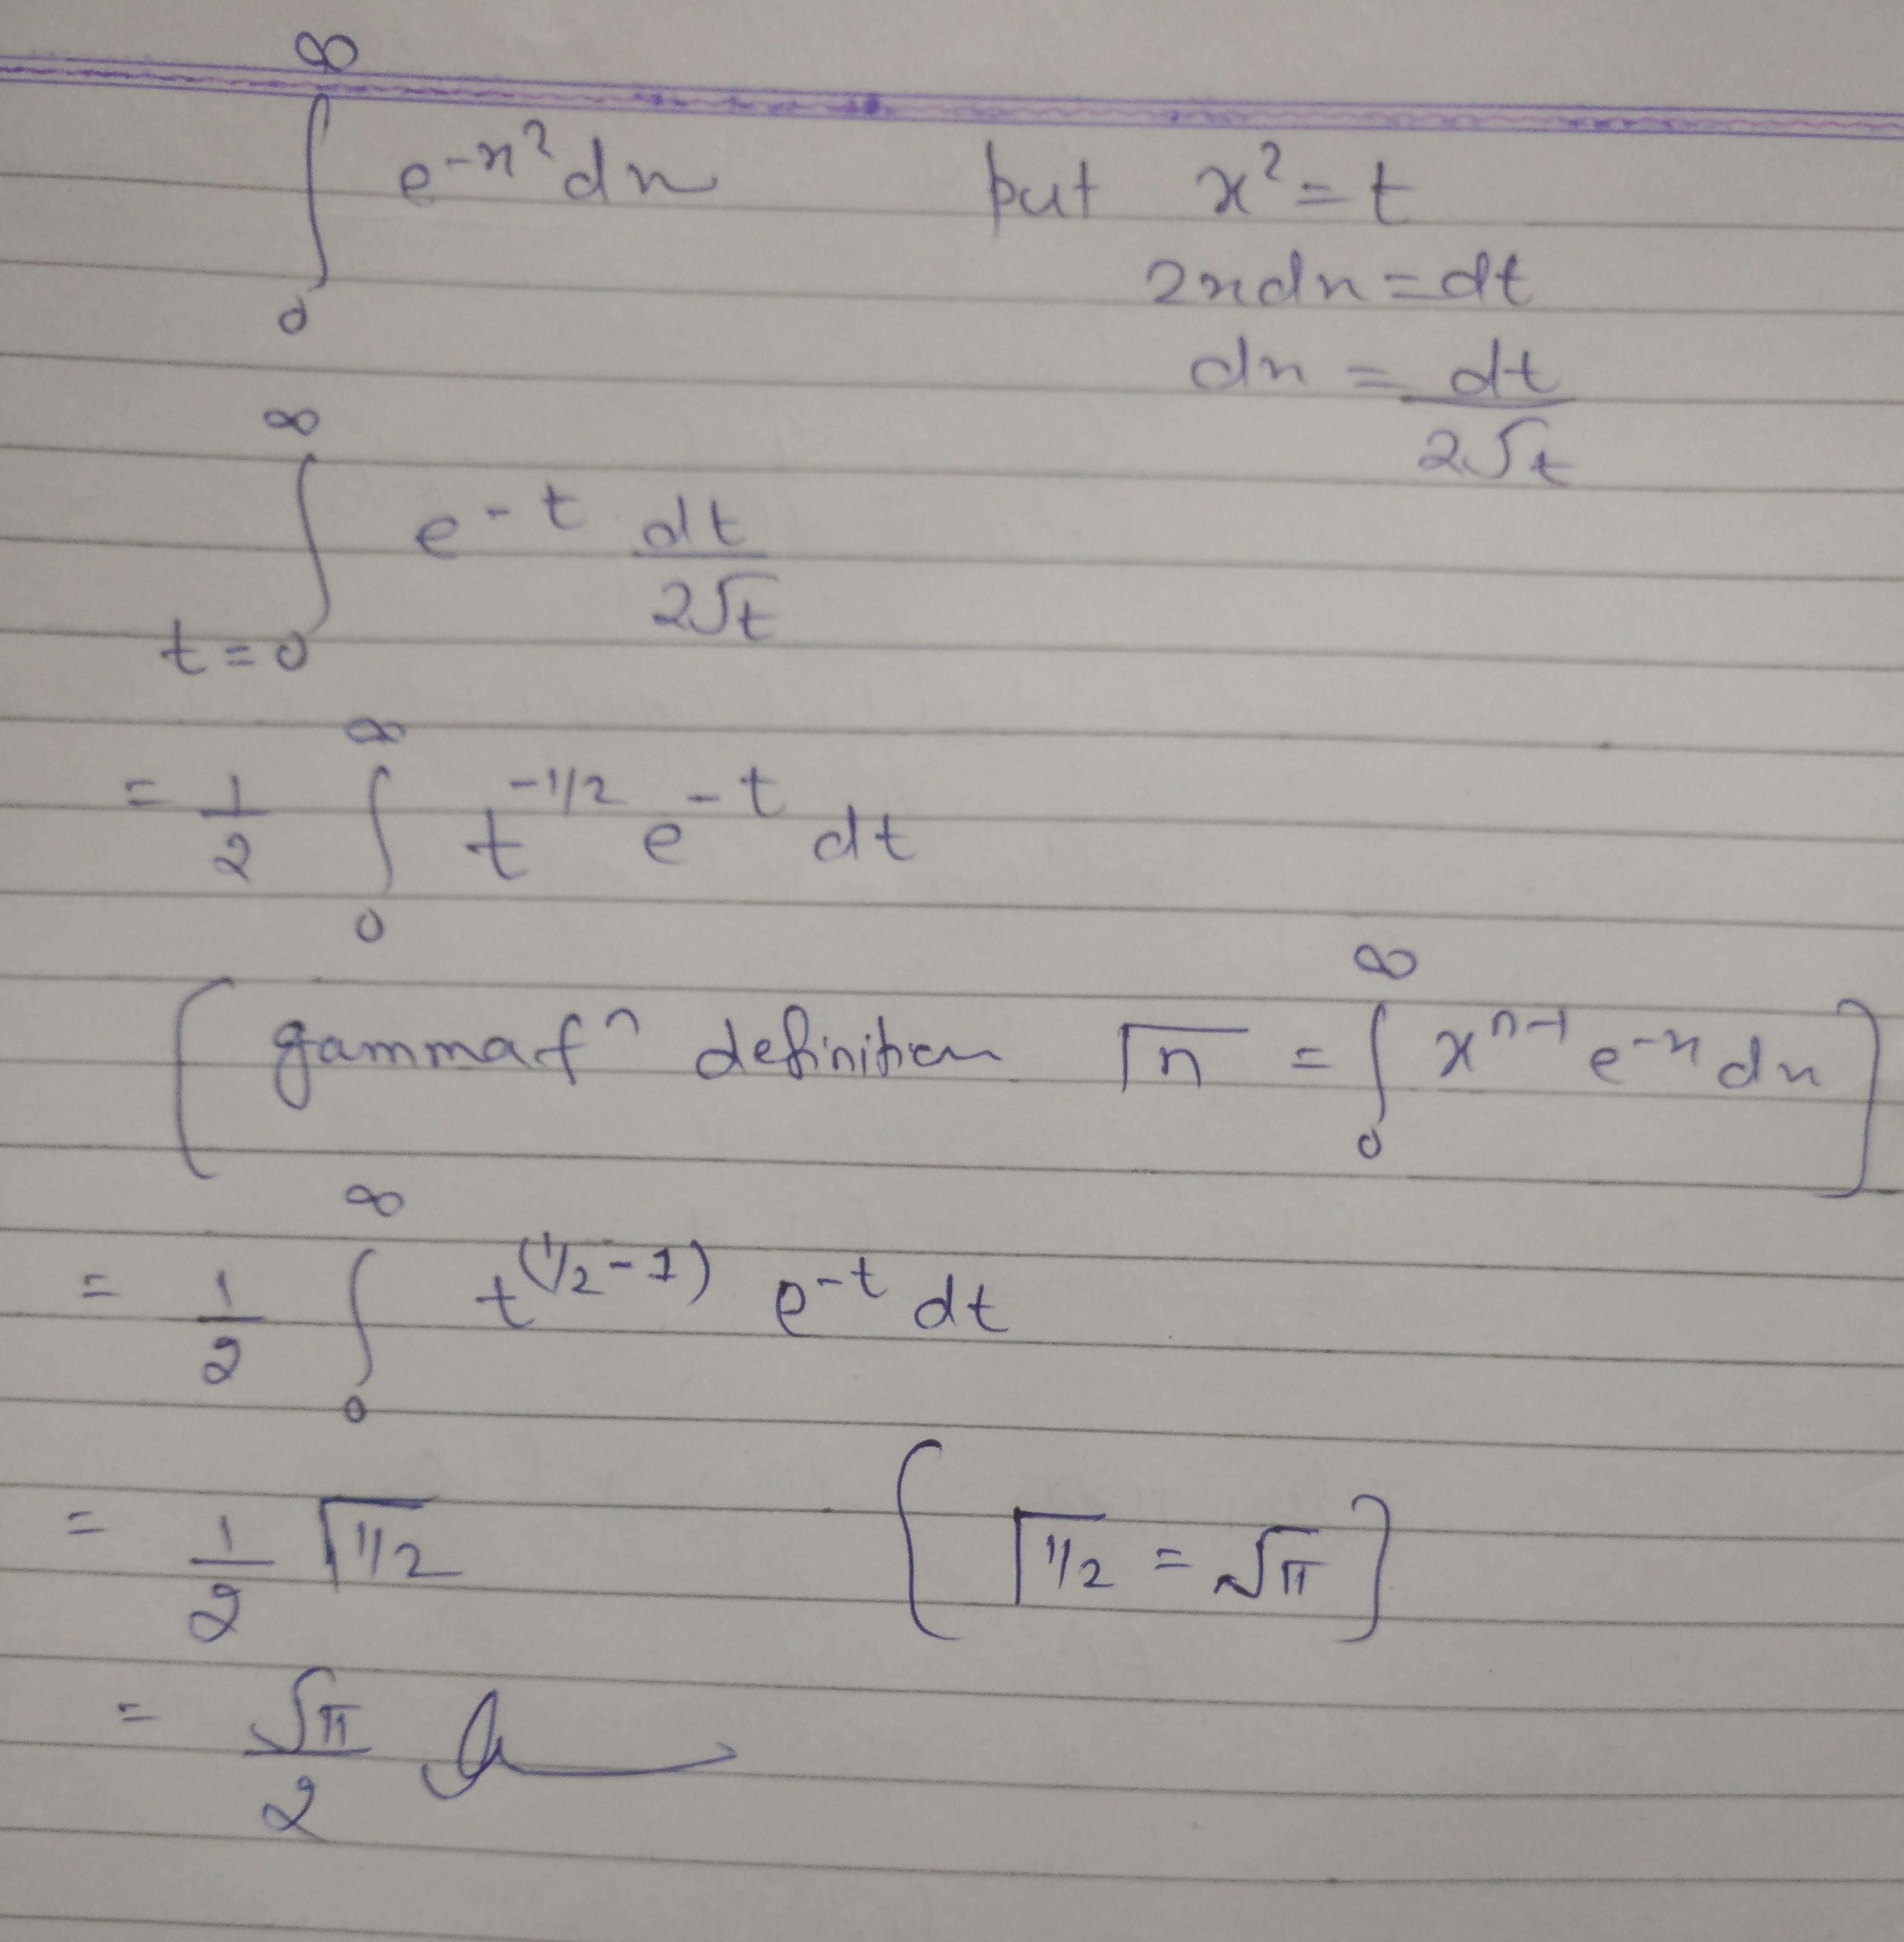 ∫₀^∞ e^{-x²} dx    put x² = t
2xdx = dt
dx = dt/2√t
∫_{t=0}^∞ e^{-t} dt/2√t
= 1/2 ∫₀^∞ t^{-1/2} e^{-t} dt
[gamma fⁿ definition Γn = ∫₀^∞ x^{n-1} e^{-x} dx]
= 1/2 ∫₀^∞ t^{(1/2-1)} e^{-t} dt
= 1/2 Γ1/2    {Γ1/2 = √π}
= √π/2